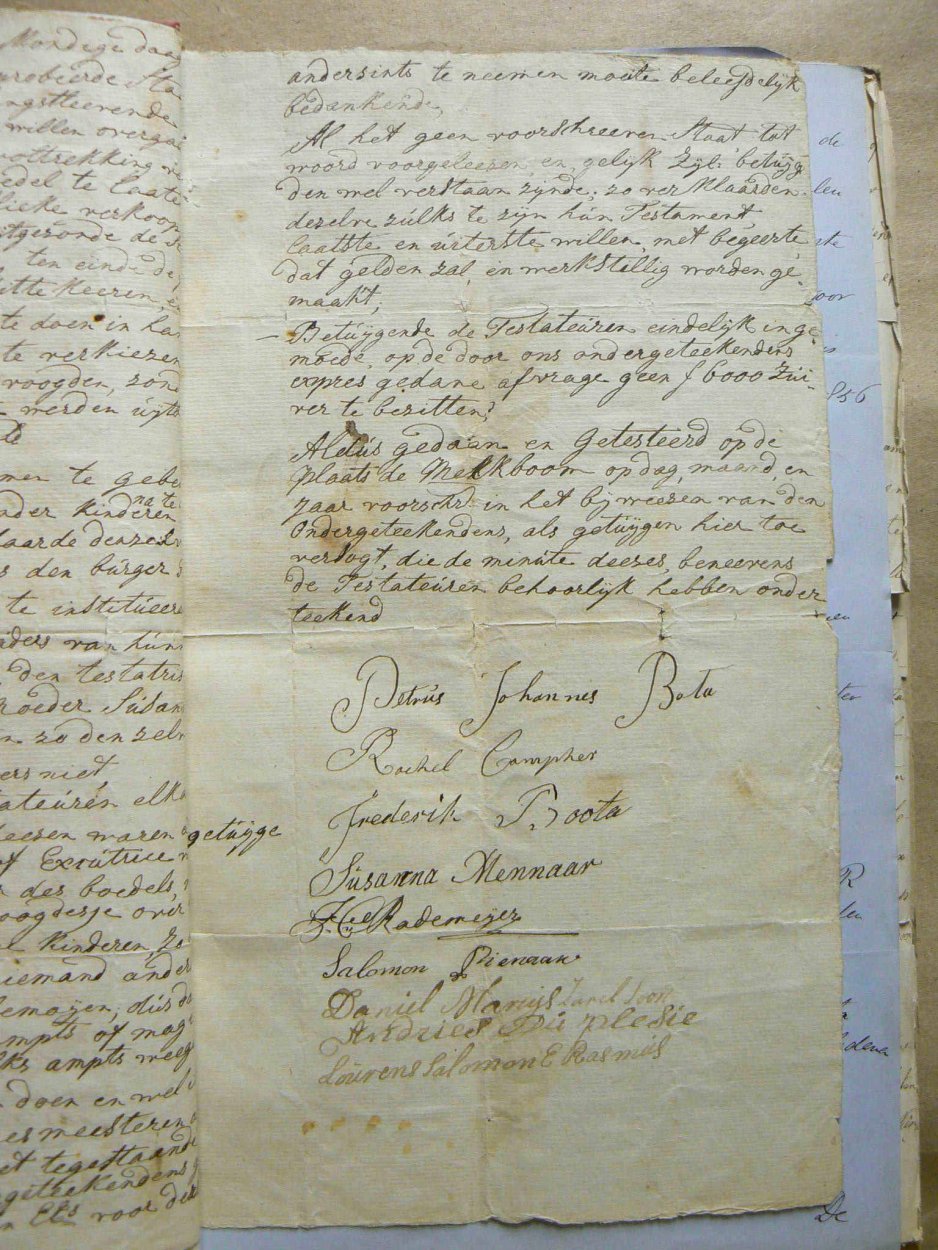 Mondige daa
probeerde Sta
ngsteerende
willen overga
voltrekking
edel te laate
lieke verkoop
itgesonde de
ten einde de
itte Keeren
te doen in ha
te verkiezen
voogden, zond
werden uijts
te
men te gebe
na te
nder kinderen
laarde denzel
s den burger
te institueere
ders van hún
den testatri
roeder Súsan
n zo den zelv
ers niet
tateúren elka
leezen waren
of Excutrice
des boedels,
oogdesse over
kinderen, Zo
iemand ander
emoijen, dús
mpts of mag
lks ampts weeg
doen en wel
es meesteren
et tegestaand
geteekendens
voor de
andersints te neemen moete beleefdelijk
bedankende,
Al het geen voorschreeven Staat tot
woord voorgeleezen en gelijk Zijl: betúijg
den wel verstaan zijnde; zo verklaarden
dezelve zúlks te zijn hún Testament
laatste en úiterste willen, met begeerte,
dat gelden zal, en werkstellig worden ge
maakt;
— Betúijgende de Testateúren eindelijk in ge
moede, op de door ons ondergeteekendens
expres gedane afvrage geen f 6000 Zúi-
ver te bezitten;
Aldús gedaan en Getesteerd op de
plaats de Melkboom op dag, maand, en
Jaar voorschr. in het bijweesen van den
Ondergeteekendens, als getúijgen hier toe
versogt, die de minúte deezes, beneevens
de Testateúren behoorlijk hebben onder
teekend
Petrús Johannis Bota
Rachel Campher
Frederik Boota
getúijge
Súsanna Mennaar
Rademeijer
Salomon Pienaar
Daniel Marúijs Karel Soon
Andries Dú plesie
Loúrens Salomon E Rasmús
de
leu
ste
oor
856
ter
R
len
dener
De